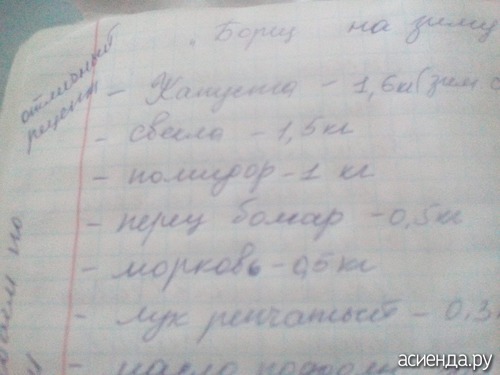 Борщ на зиму
отличный
рецепт
- Капуста - 1,6кг (зим
- свекла - 1,5кг
- помидор - 1 кг
- перец болгар - 0,5кг
- морковь - 0,5кг
- лук репчатый - 0,3
- масло
асиенда.ру